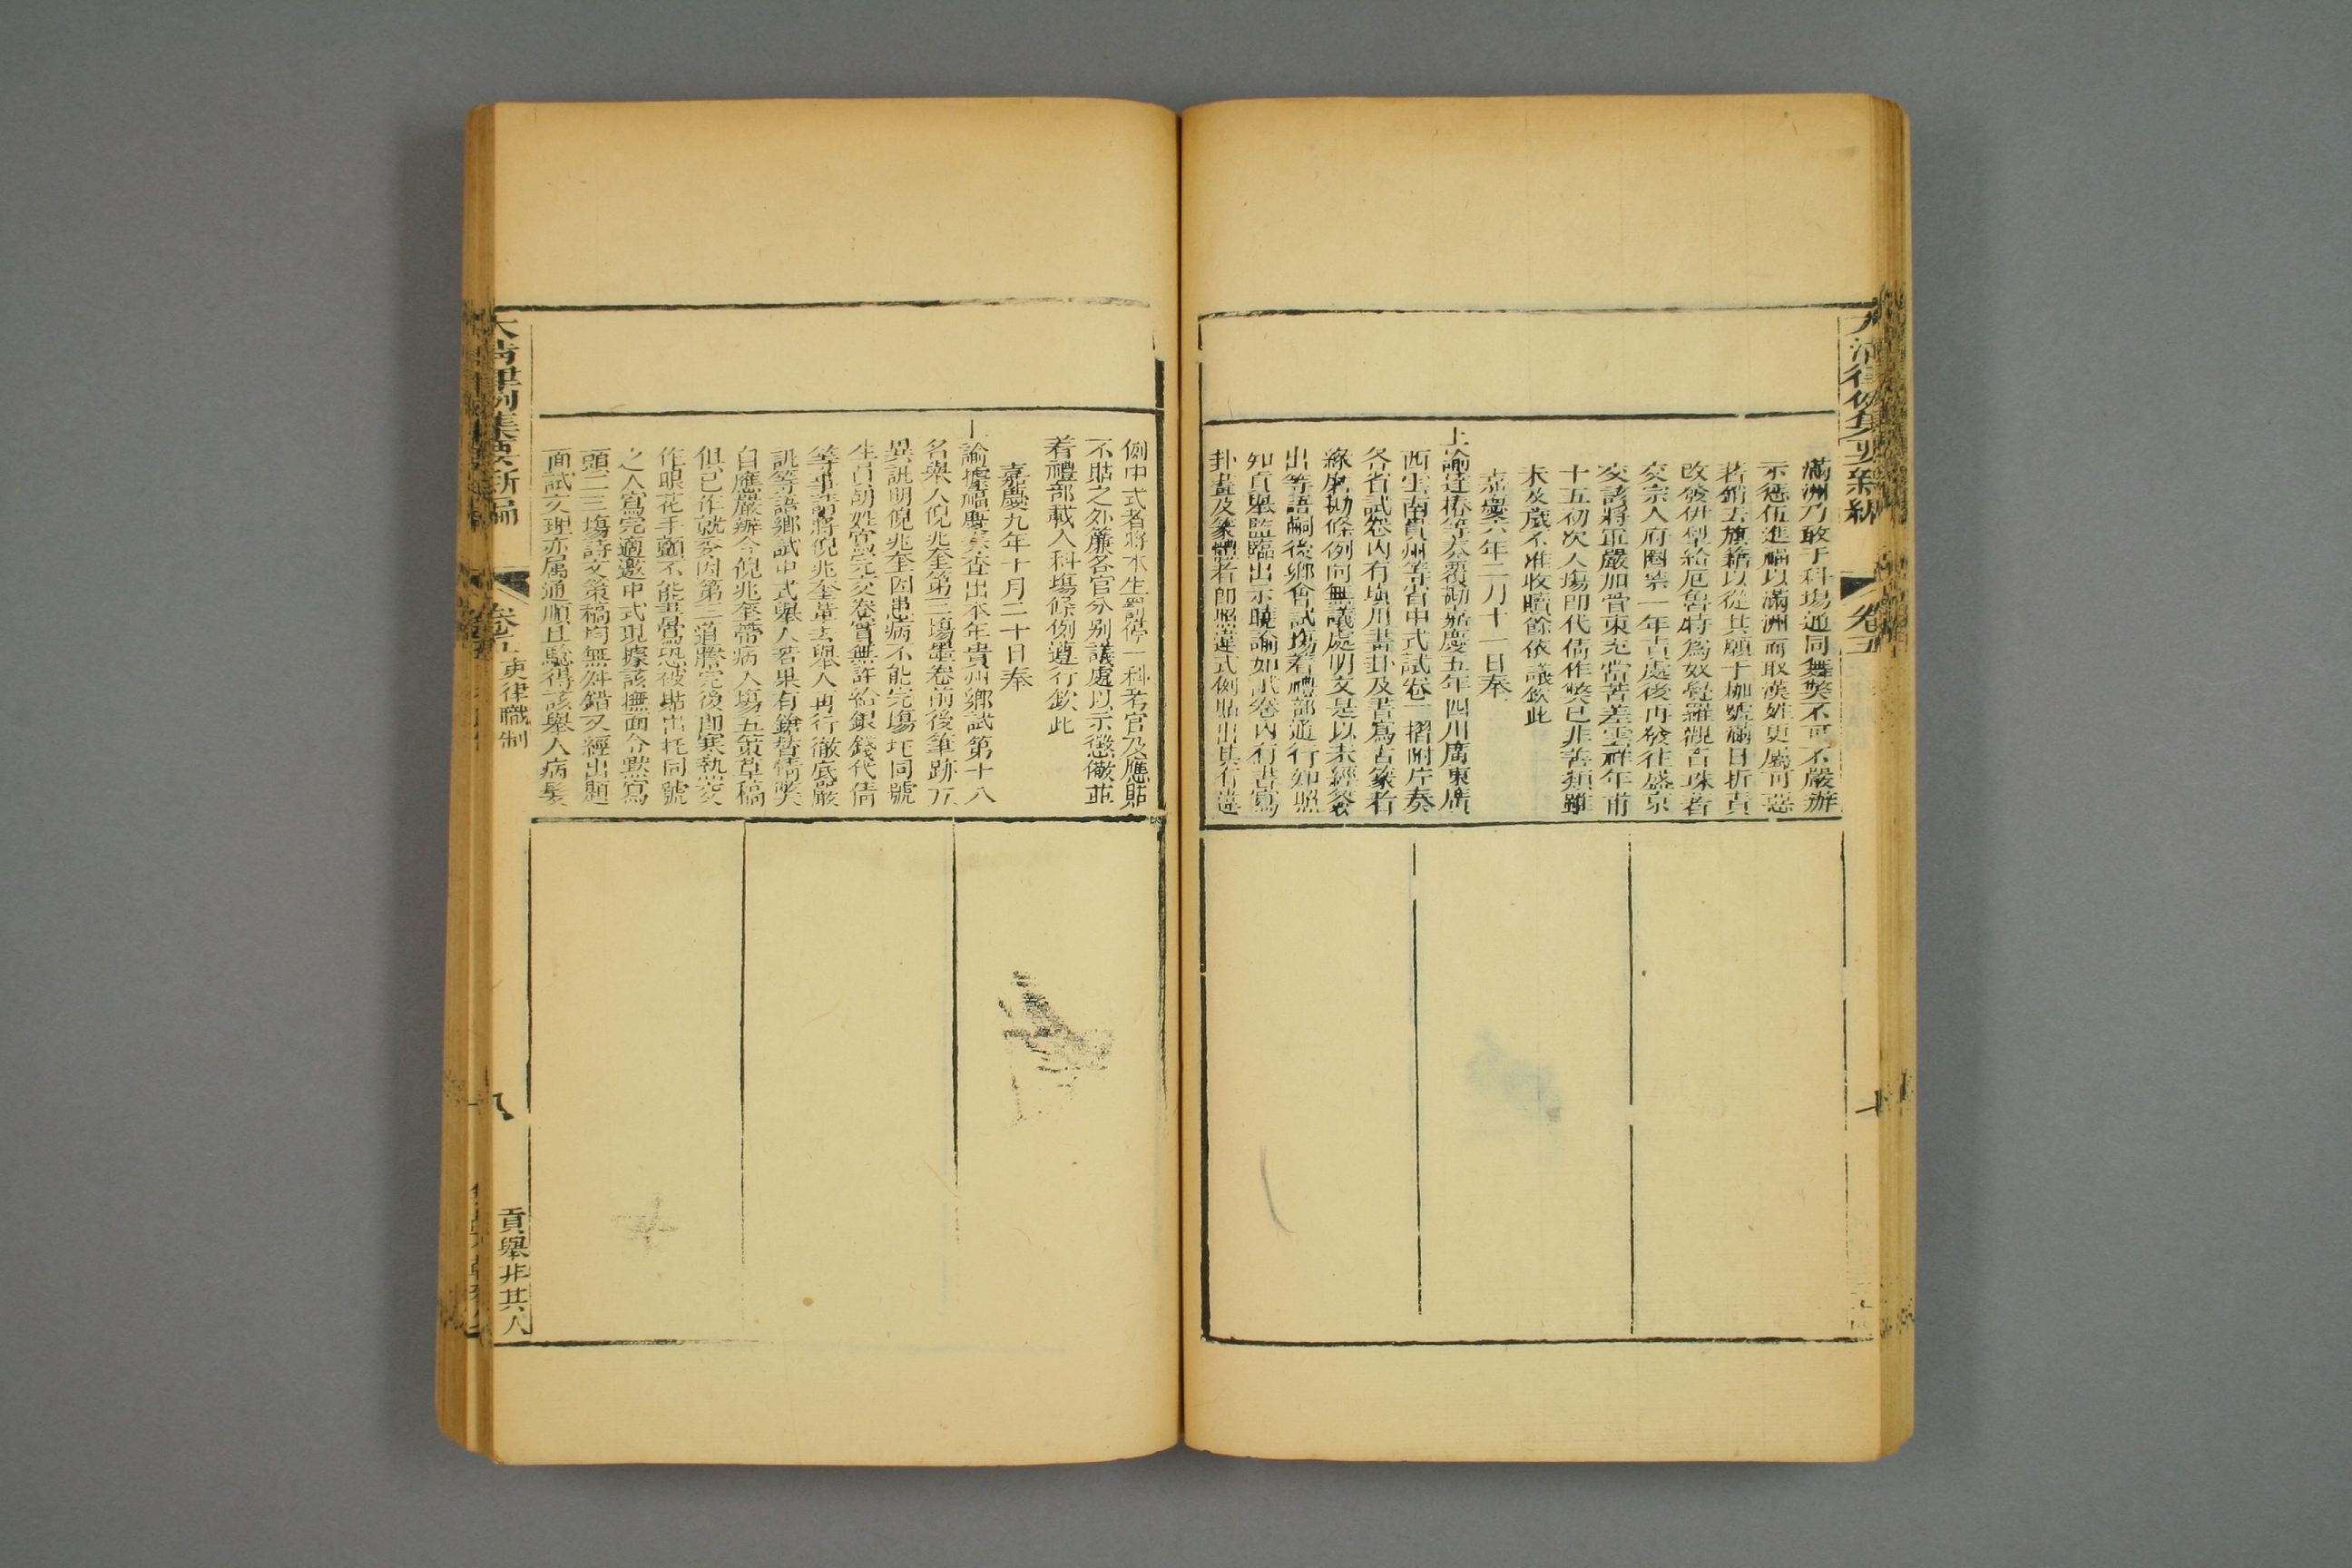 大清律例集要新編
卷五
滿洲乃敢于科場通同舞獘不可不嚴辦
示懲伍進福以滿洲而取漢姓更屬可惡
著銷去旗籍以從其願于枷號滿日折責
改發伊犂給厄魯特為奴覺羅觀音珠著
交宗人府圈禁一年責處後再發往盛京
交該將軍嚴加管束充當苦差雲祥年甫
十五初次入塲即代倩作獘已非善類雖
未及歲不准收贖餘依議欽此
嘉慶六年二月十一日奉
上諭達椿等奏覆勘嘉慶五年四川廣東廣
西雲南貴州等省中式試卷一摺附片奏
各省試卷內有填用書卦及書寫古篆者
緣磨勘條例向無議處明文是以未經簽
出等語嗣後鄉會試塲著禮部通行知照
知貢舉監臨出示曉諭如試卷內有書寫
卦畫及篆體者即照違式例貼出其有違
例中式者將本生罰停一科考官及應貼
不貼之外簾各官分别議處以示懲儆並
著禮部載入科塲條例遵行欽此
嘉慶九年十月二十日奉
上諭據福慶奏查出本年貴州鄉試第十八
名舉人倪兆奎第三塲墨卷前後筆跡互
異訊明倪兆奎因患病不能完塲央同號
生呂朝姓寫完交卷實無許給銀錢代倩
等事請將倪兆奎革去舉人再行徹底嚴
訊等語鄉試中式舉人若果有鎗替情獘
自應嚴辦今倪兆奎帶病入塲五策草稿
俱已作就委因第三道謄完後即寒熱交
作眼花手顫不能書寫恐被貼出央同號
之人寫完適邀中式現據該撫面令默寫
頭二三塲詩文策稿均無舛錯又經出題
面試文理亦屬通順且驗得該舉人病髮
大清律例集要新編
卷五
吏律職制
貢舉非其人